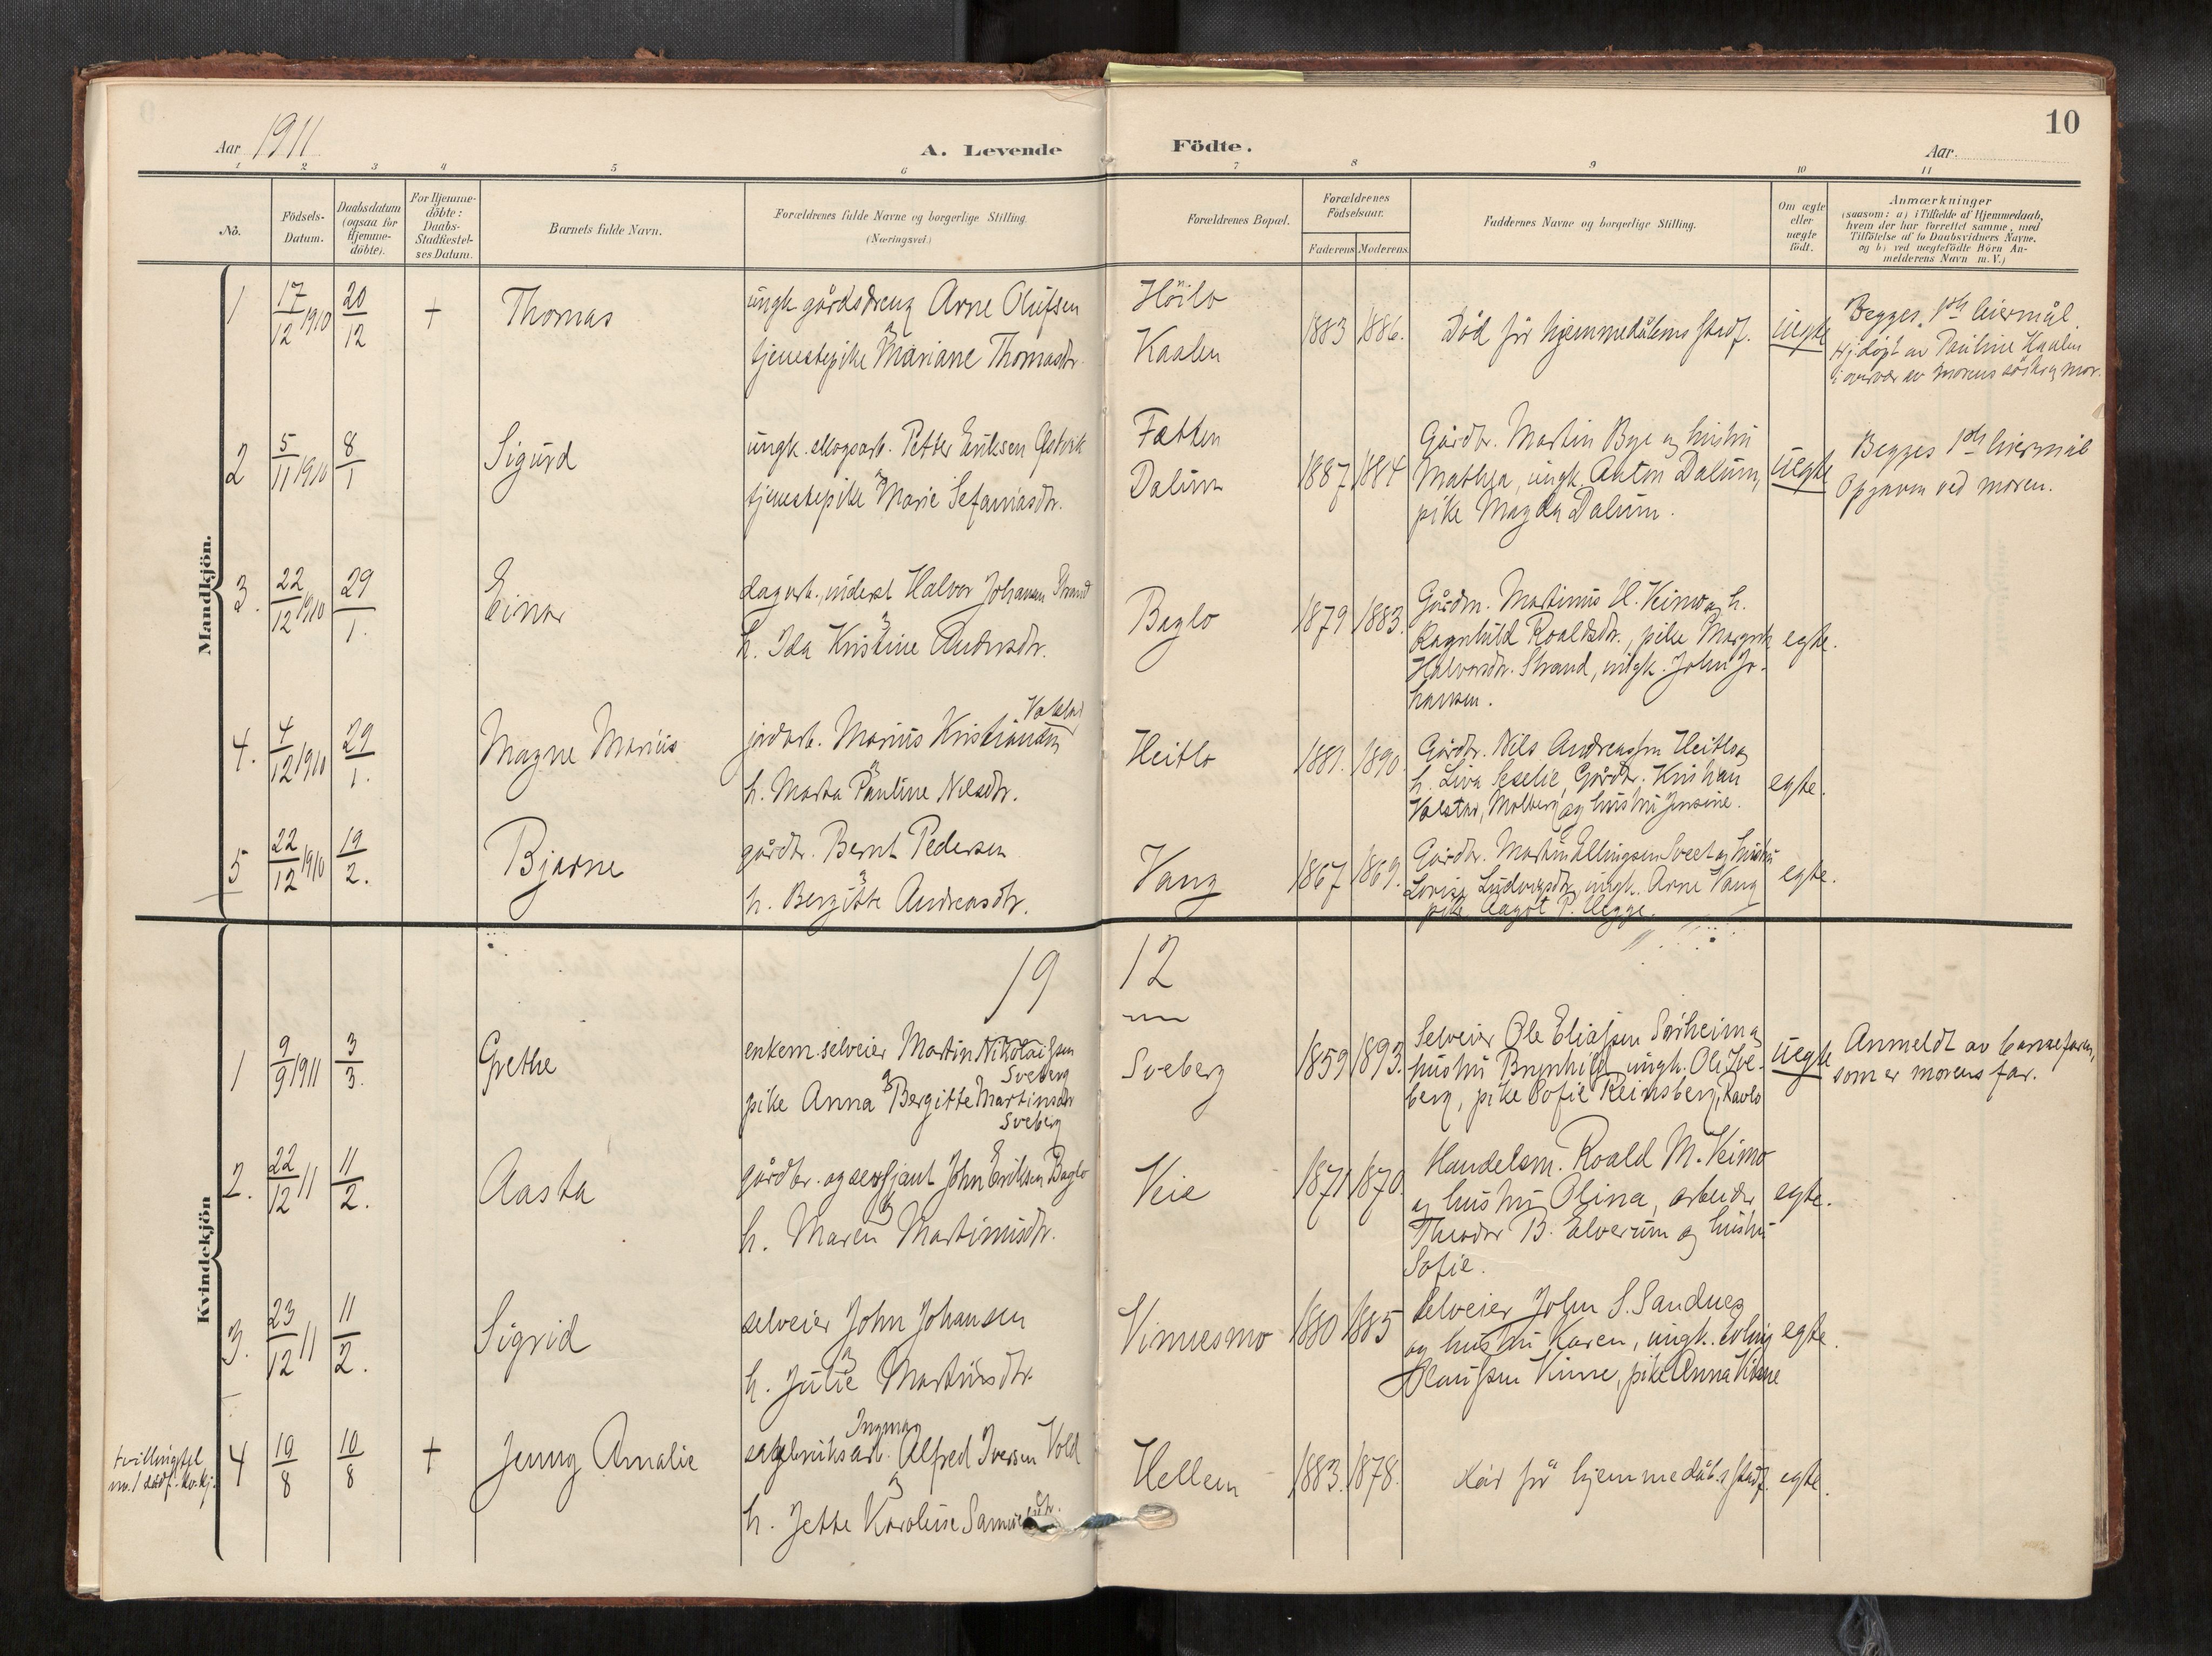 Aar 1911
A. Levende Födte.
Aar.
10
1 2 3 4 5 6 7 8 9 10 11
No.
Födsels-Datum.
Daabsdatum (ogsaa for Hjemme-döbte).
For Hjemme-döbte: Daabs-Stadfæstel-ses Datum.
Barnets fulde Navn.
Forældrenes fulde Navne og borgerlige Stilling.
(Næringsvei.)
Forældrenes Bopæl.
Forældrenes Födselsaar.
Faderens Moderens
Faddernes Navne og borgerlige Stilling.
Om ægte eller uægte födt.
Anmærkninger
(saasom: a) i Tilfælde af Hjemmedaab,
hvem der har forrettet samme, med
Tilföielse af to Daabsvidners Navne.
og b) ved uægtefödte Börn An-
melderens Navn m.V.)
Mandkjön.
1 17/12 1910 20/12 + Thomas
ungk. gårdsdreng Arne Olufsen
tjenestepike Mariane Thomasdr.
Höilo
Kaalen
1883 1886.
Död för hjemmedåbens stadf.
uegte
Begges 1ste leiermål.
Hj.döpt av Pauline Kaalen
i overvær av morens söster og mor.
2 5/11 1910 8/1 Sigurd
ungk. skogsarb. Petter Eriksen
tjenestepike Marie Sefaniasdr.
Fætten
Dalum
1887 1884
Gårdbr. Martin Bye og hustru
Mathea, ungk. Anton Dalum,
pike Magda Dalum.
uegte
Begges 1ste leiermål
Opgaven ved moren.
3. 22/12 1910 29/1. Einar
dagarb., inderst Halvor Johansen Strand
h. Ida Kristine Andersdr.
Baglo
1879 1883.
Gårdm. Martinus H. Veimo og h.
Ragnhild Roaldsdr., pike Margrete
Halvorsdr. Strand, ungk. John Jo-
hansen.
egte.
4. 4/12 1910 29/1. Magne Marius
Valstad
jordarb. Marius Kristiansen
h. Marta Pauline Nilsdr.
Heitlo
1881. 1890.
Gårdbr. Nils Andreassen Heitlo og
h. Liva Seselie, Gårdbr. Kristian
Valstad, Molberg og hustru Jensine.
egte.
5 22/12 1910 19/2. Bjarne
gårdbr. Bernt Pedersen
h. Bergitte Andreasdr.
Vang
1867 1869.
Gårdbr. Martin Ellingsen Sveet og hustru
Lovise Ludvigsdr, ungk. Arne Vang
pike Aagot P. Hegge.
egte.
19 12
Kvindekjön
1 9/9 1911 3/3. Grethe
enkem. selveier Martin Nikolaissen
Sveberg
pike Anna Bergitte Martinsdr
Sveberg
Sveberg
1859 1893.
Selveier Ole Eliassen Sörheim og
hustru Brynhild, ungk. Ole Sve-
berg, pike Sofie Reinsberg, Ravlo
uegte
Anmeldt av barnefaren,
som er morens far.
2. 22/12 11 11/2. Aasta
gårdbr. og sersjant John Eriksen Baglo
h. Maren Martinusdr.
Veie
1871 1870.
Handelsm. Roald M. Veimo
og hustru Olina, arbeider
Theodor B. Elverum og hustru
Sofie.
egte.
3. 23/12 11 11/2. Sigrid
selveier John Johansen
h. Julie Martinsdr.
Vinnesmo
1880 1885
Selveier John S. Sandnes
og hustru Karen, ungk. Erling
Olaussen Vinne, pike Anna Vinne
egte.
tvillingfdl.
m. 1 dödf. kv.kj.
4 19/8 10/8 + Jenny Amalie
Ingmar
sagbruksarb. Alfred Iversen Vold
h. Jette Karoline
Hellem
1883. 1878.
Död för hjemmedåb.s stadf.
egte.